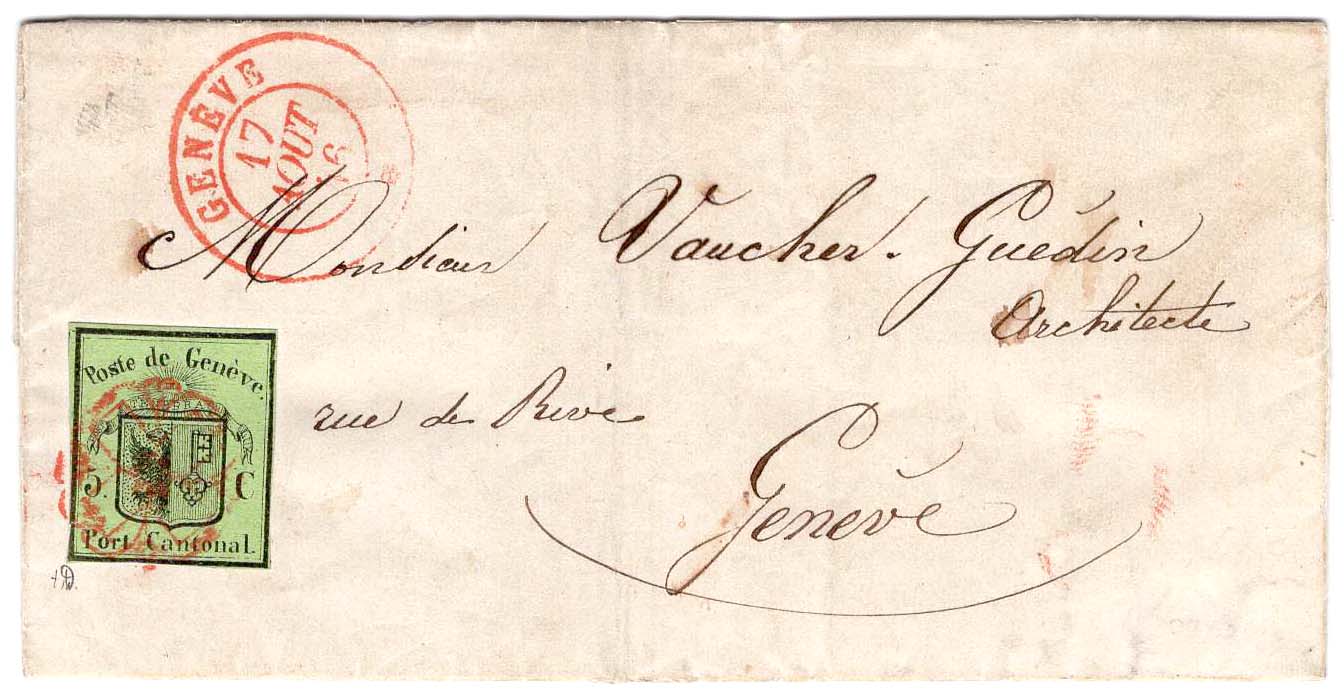 GENÈVE
17
AOUT
46
Monsieur Vaucher. Guédin
Architecte
rue de Rive
Genève
Poste de Genève.
5. C
Port Cantonal.